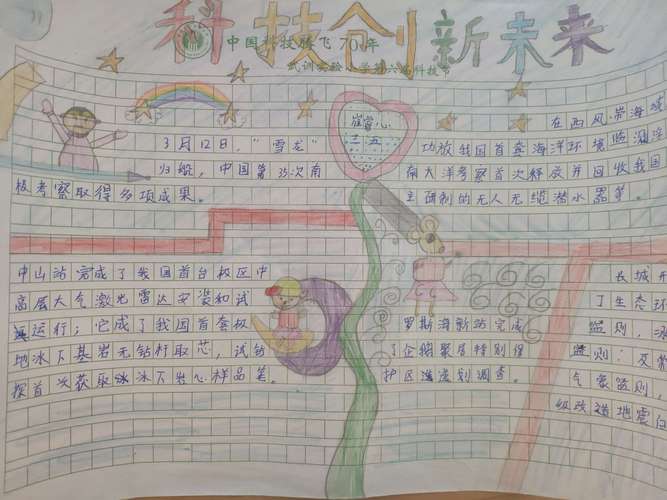 科技创新未来
中国科技腾飞70年
武训实验小学第六届科技节
崔掌心
二、五
3月12日，“雪龙”
归航，中国第35次南
极考察取得多项成果。
在西风带海域
功放我国首套海洋环境监测浮
南大洋考察首次释放并回收我国
主研制的无人无缆潜水器等。
中山站完成了我国首台极区中
高层大气激光雷达安装和试
运行；它成了我国首套极
地冰下基岩无钻杆取芯，试钻
探首次获取冰下岩心样品等。
罗斯海新站完成
了企鹅聚居特别保
护区选划调查。
长城开
了生态环
监则，冰
监则：及常
气象监则，
级改造地震台